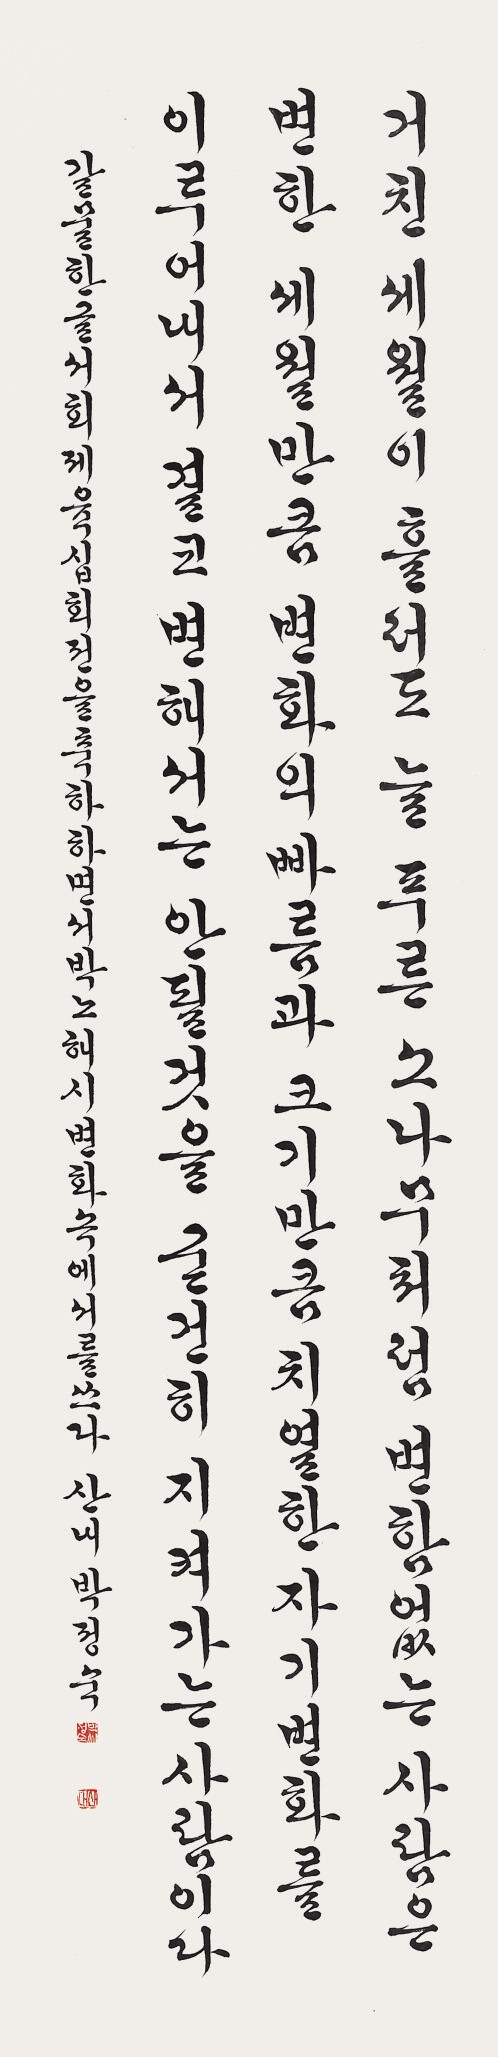 거친 세월이 흘러도 늘 푸른 소나무처럼 변함없는 사람은
변한 세월만큼 변화의 빠름과 크기만큼 치열한 자기변화를
이루어내서 결코 변해서는 안될것을 굳건히 지켜가는 사람이라
갈물한글서회 제육십회전을 축하하면서 박노해 시 변화 속에서를 쓰다 산내 박정숙